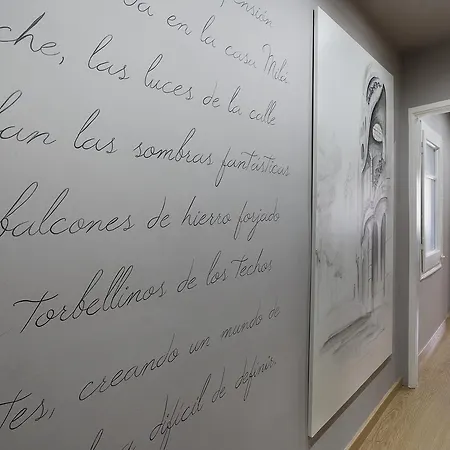 pensión
en la casa Milá.
che, las luces de la calle
las sombras fantásticas
balcones de hierro forjado
torbellinos de los techos
tes, creando un mundo de
difícil de definir.